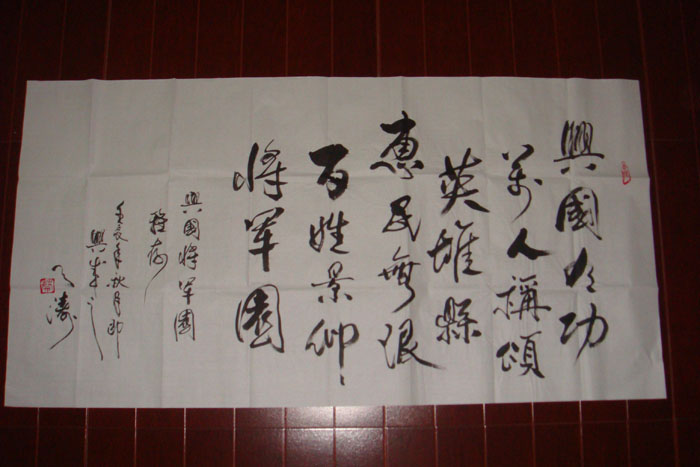 興國大功
萬人稱頌
英雄縣
惠民無限
百姓景仰
將軍園
興國將軍園
雅存
壬辰年秋月即
興書之
天濤